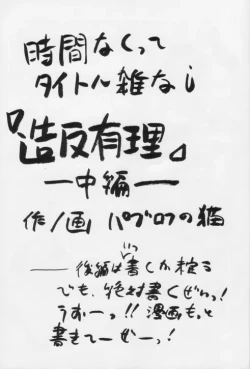 時間なくって
タイトル雑なし
『造反有理』
―中編―
作/画 パブロフの猫
――後編はいつ書くか
でも、絶対書くぜっ!
うおーっ!!漫画もっと
書きてーぜーっ!